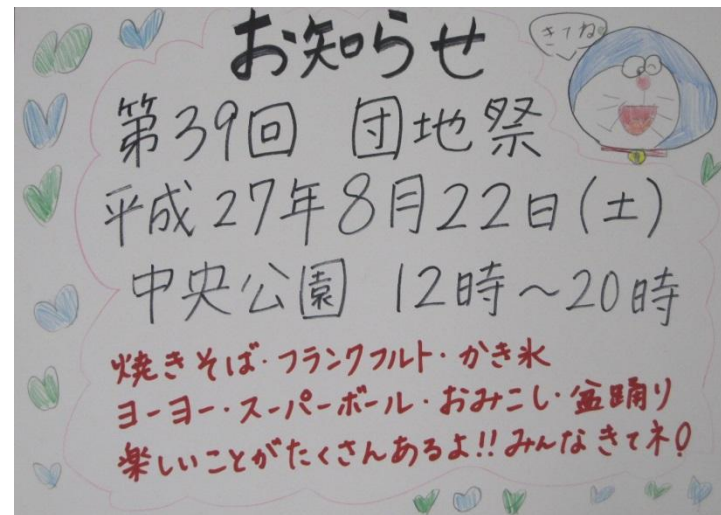 お知らせ
きてね
第39回 団地祭
平成27年8月22日(土)
中央公園 12時～20時
焼きそば・フランクフルト・かき氷
ヨーヨー・スーパーボール・おみこし・盆踊り
楽しいことがたくさんあるよ!!みんなきてネ!